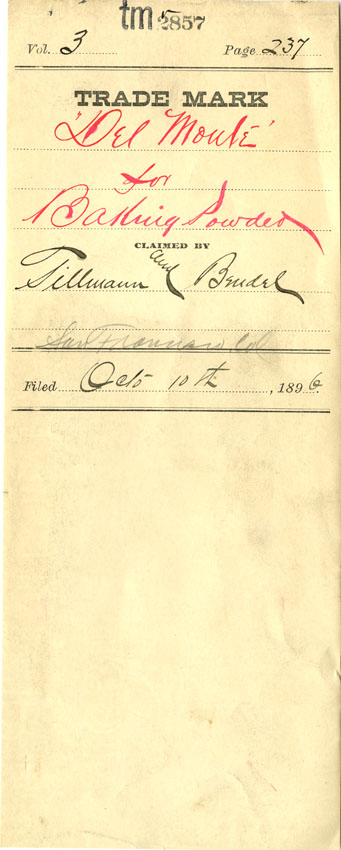 tm 2857
Vol. 3 Page 237
TRADE MARK
"Del Monte"
for
Baking Powder
CLAIMED BY
Tillmann and Bendel
San Francisco Cal
Filed Octo 10th, 1896.